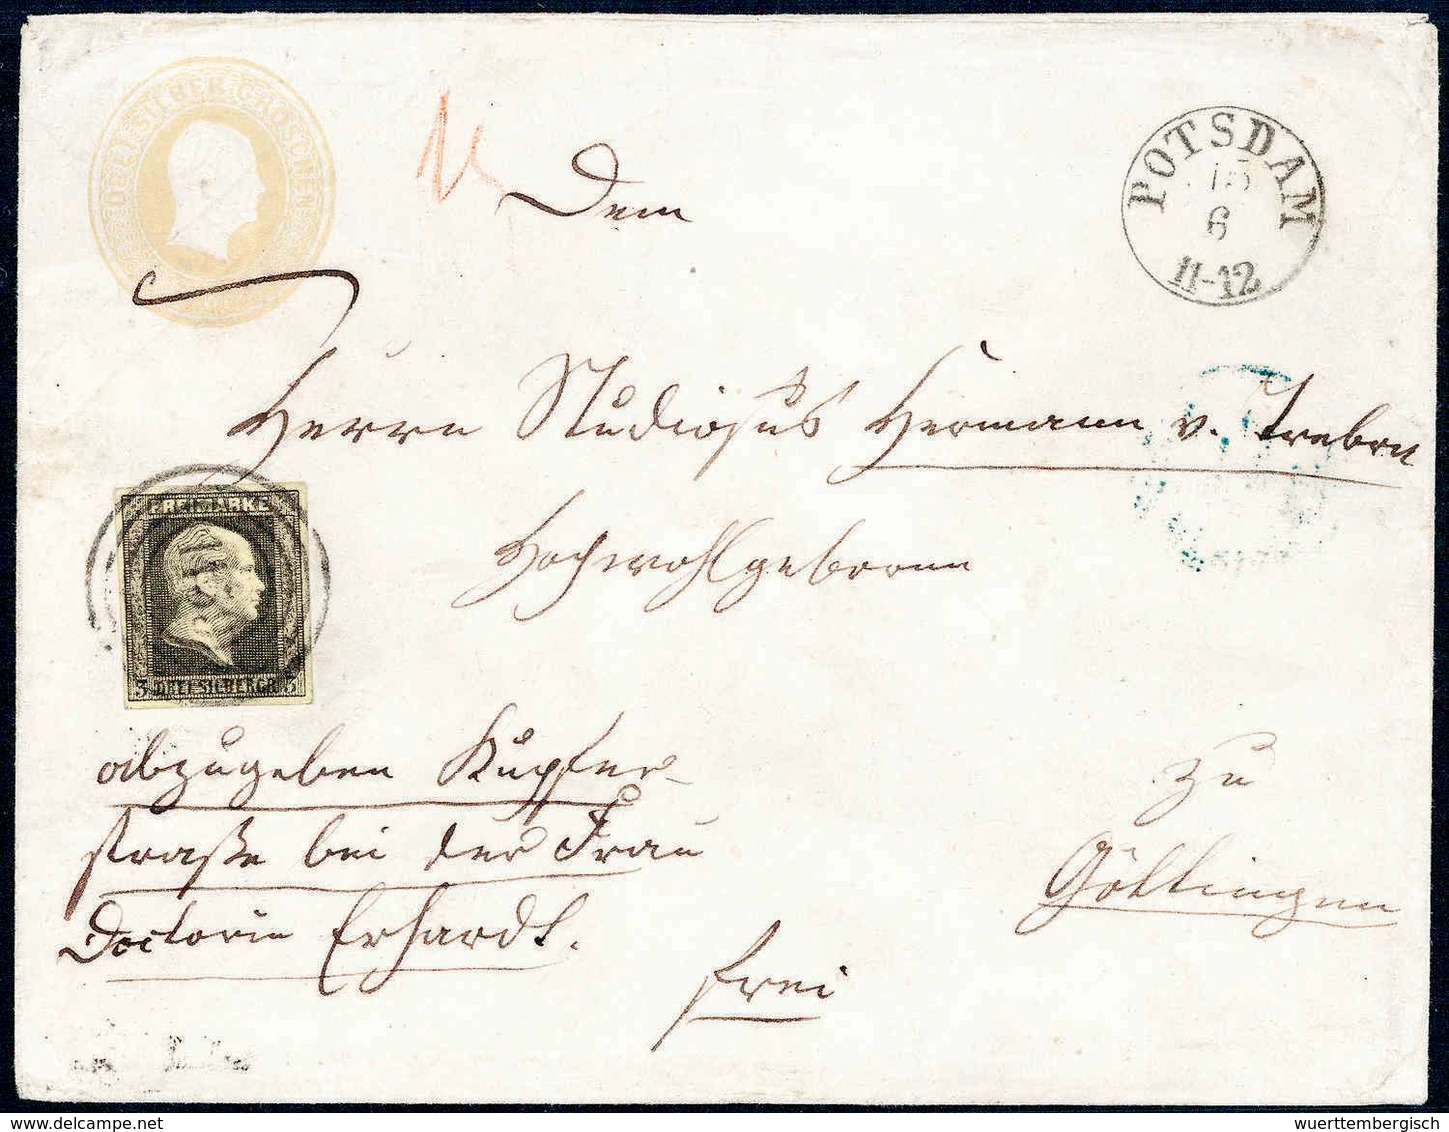 DREI SILBER GROSCHEN
Dem
POTSDAM
15
6
11-12
Herrn Studiosus Hermann v. Trebra
Hochwohlgeboren
FREIMARKE
3 DREI SILBERGR. 3
abzugeben Kupfer-
straße bei der Frau
Doctorin Erhardt.
zu
Göttingen
frei
wuerttembergisch